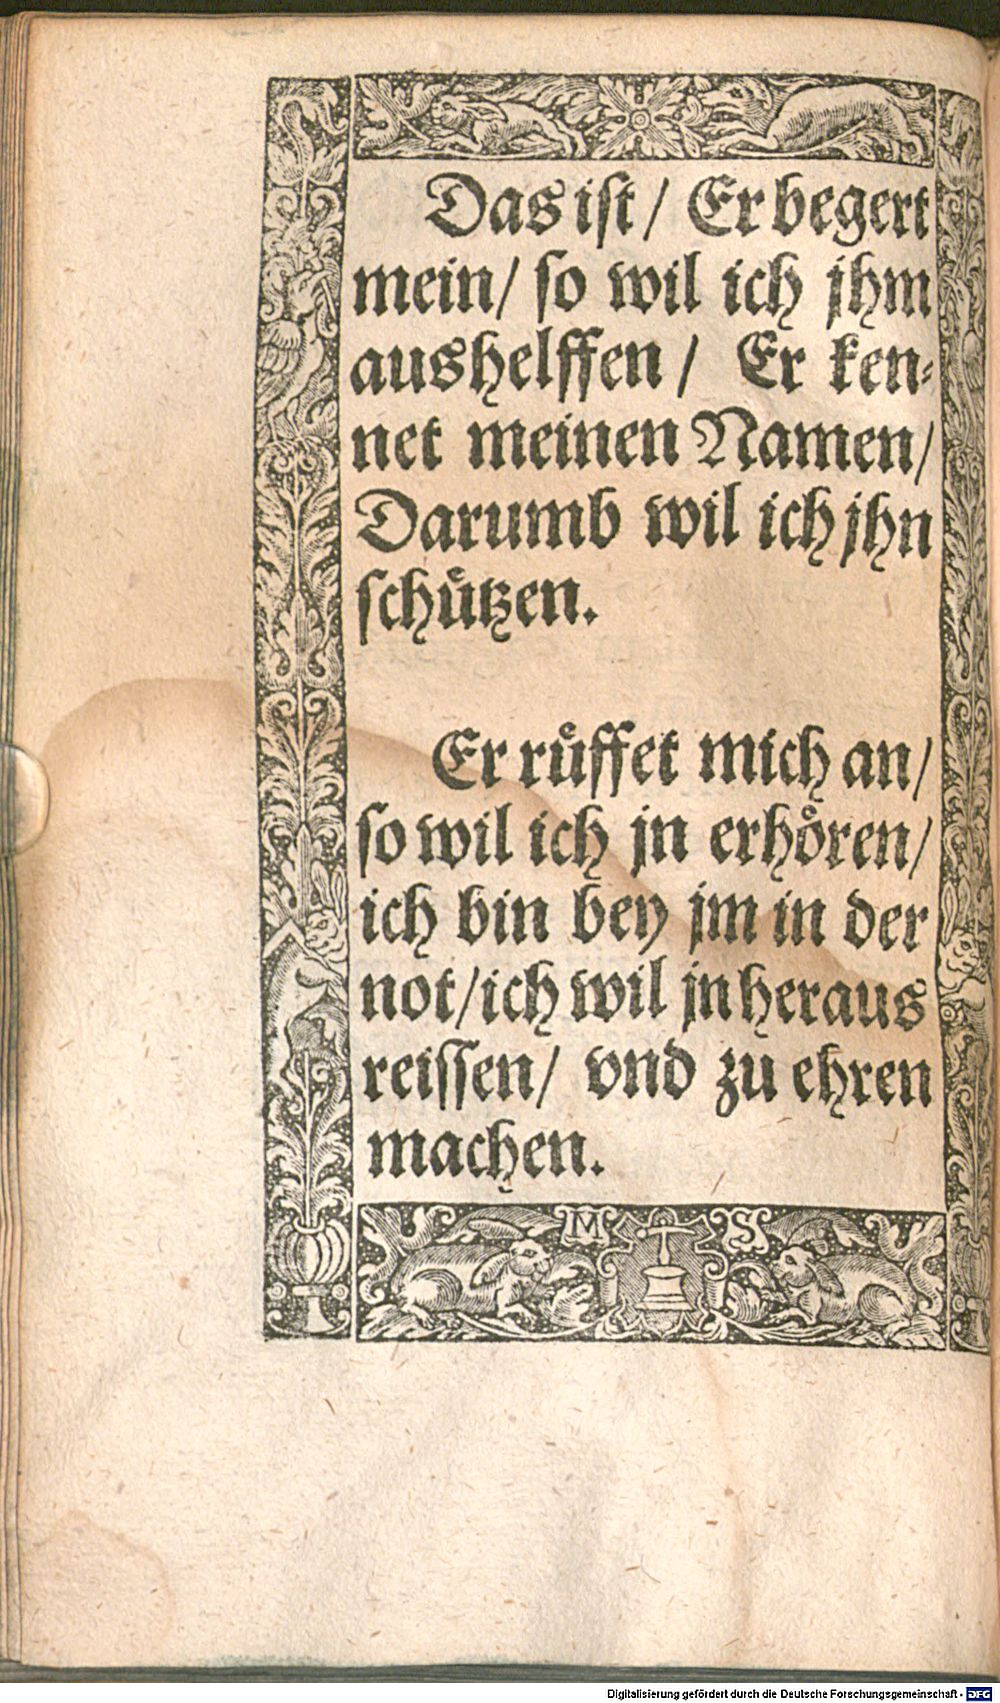 Das ist/ Er begert
mein/ so wil ich jhm
aushelffen/ Er ken⸗
net meinen Namen/
Darumb wil ich jhn
schuͤtzen.
Er ruͤffet mich an/
so wil ich jn erhoͤren/
ich bin bey jm in der
not/ich wil jn heraus
reissen/ vnd zu ehren
machen.
M S
Digitalisierung gefördert durch die Deutsche Forschungsgemeinschaft - DFG